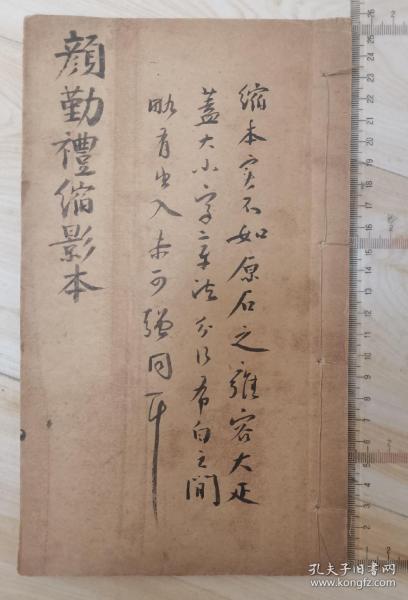 顔勤禮缩影本
缩本实不如原石之雍容大
蓋大小字章法分行布白之間
略有出入未可强同耳
孔夫子旧书网
www.kongfz.com